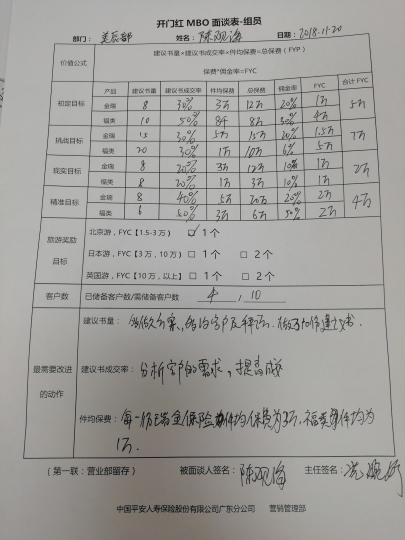 开门红 MBO 面谈表-组员
部门： 姓名：陈观海 日期：2018.11.20
价值公式 建议书量×建议书成交率×件均保费=总保费（FYP）
保费*佣金率=FYC
产品 建议书量 建议书成交率 件均保费 总保费 佣金率 FYC 合计 FYC
初定目标 金瑞 8 30% 3万 12万 20% 1万 5万
福类 10 50% 8万 30% 4万
挑战目标 金瑞 15 30% 5万 15万 20% 1.5万 7万
福类 20 30% 1万 10万 5万
现实目标 金瑞 8 20% 3万 12万 10% 1万 2万
福类 8 20% 1万 3万 10% 1万
精准目标 金瑞 8 40% 5万 20万 20% 2万 4万
福类 6 50% 3万 6万 50% 2万
旅游奖励目标 北京游，FYC【1.5-3 万） □ 1 个
日本游，FYC【3 万，10 万） □ 1 个 □ 2 个
英国游，FYC【10 万，以上】 □ 1 个 □ 2 个
客户数 已储备客户数/需储备客户数 4 / 10
最需要改进的动作
建议书量：
建议书成交率：分析客户的需求，提高成
件均保费：每一份金瑞保险件均保费为3万.福类件均为
1万.
（第一联：营业部留存） 被面谈人签名：陈观海 主任签名：
中国平安人寿保险股份有限公司广东分公司 营销管理部